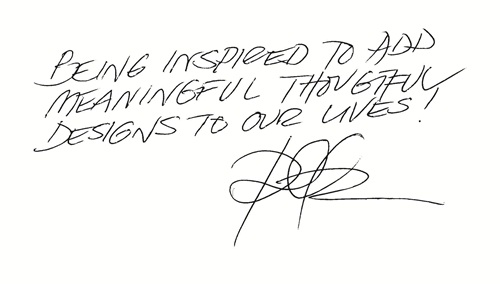 BEING INSPIRED TO ADD
MEANINGFUL THOUGTFUL
DESIGNS TO OUR LIVES!